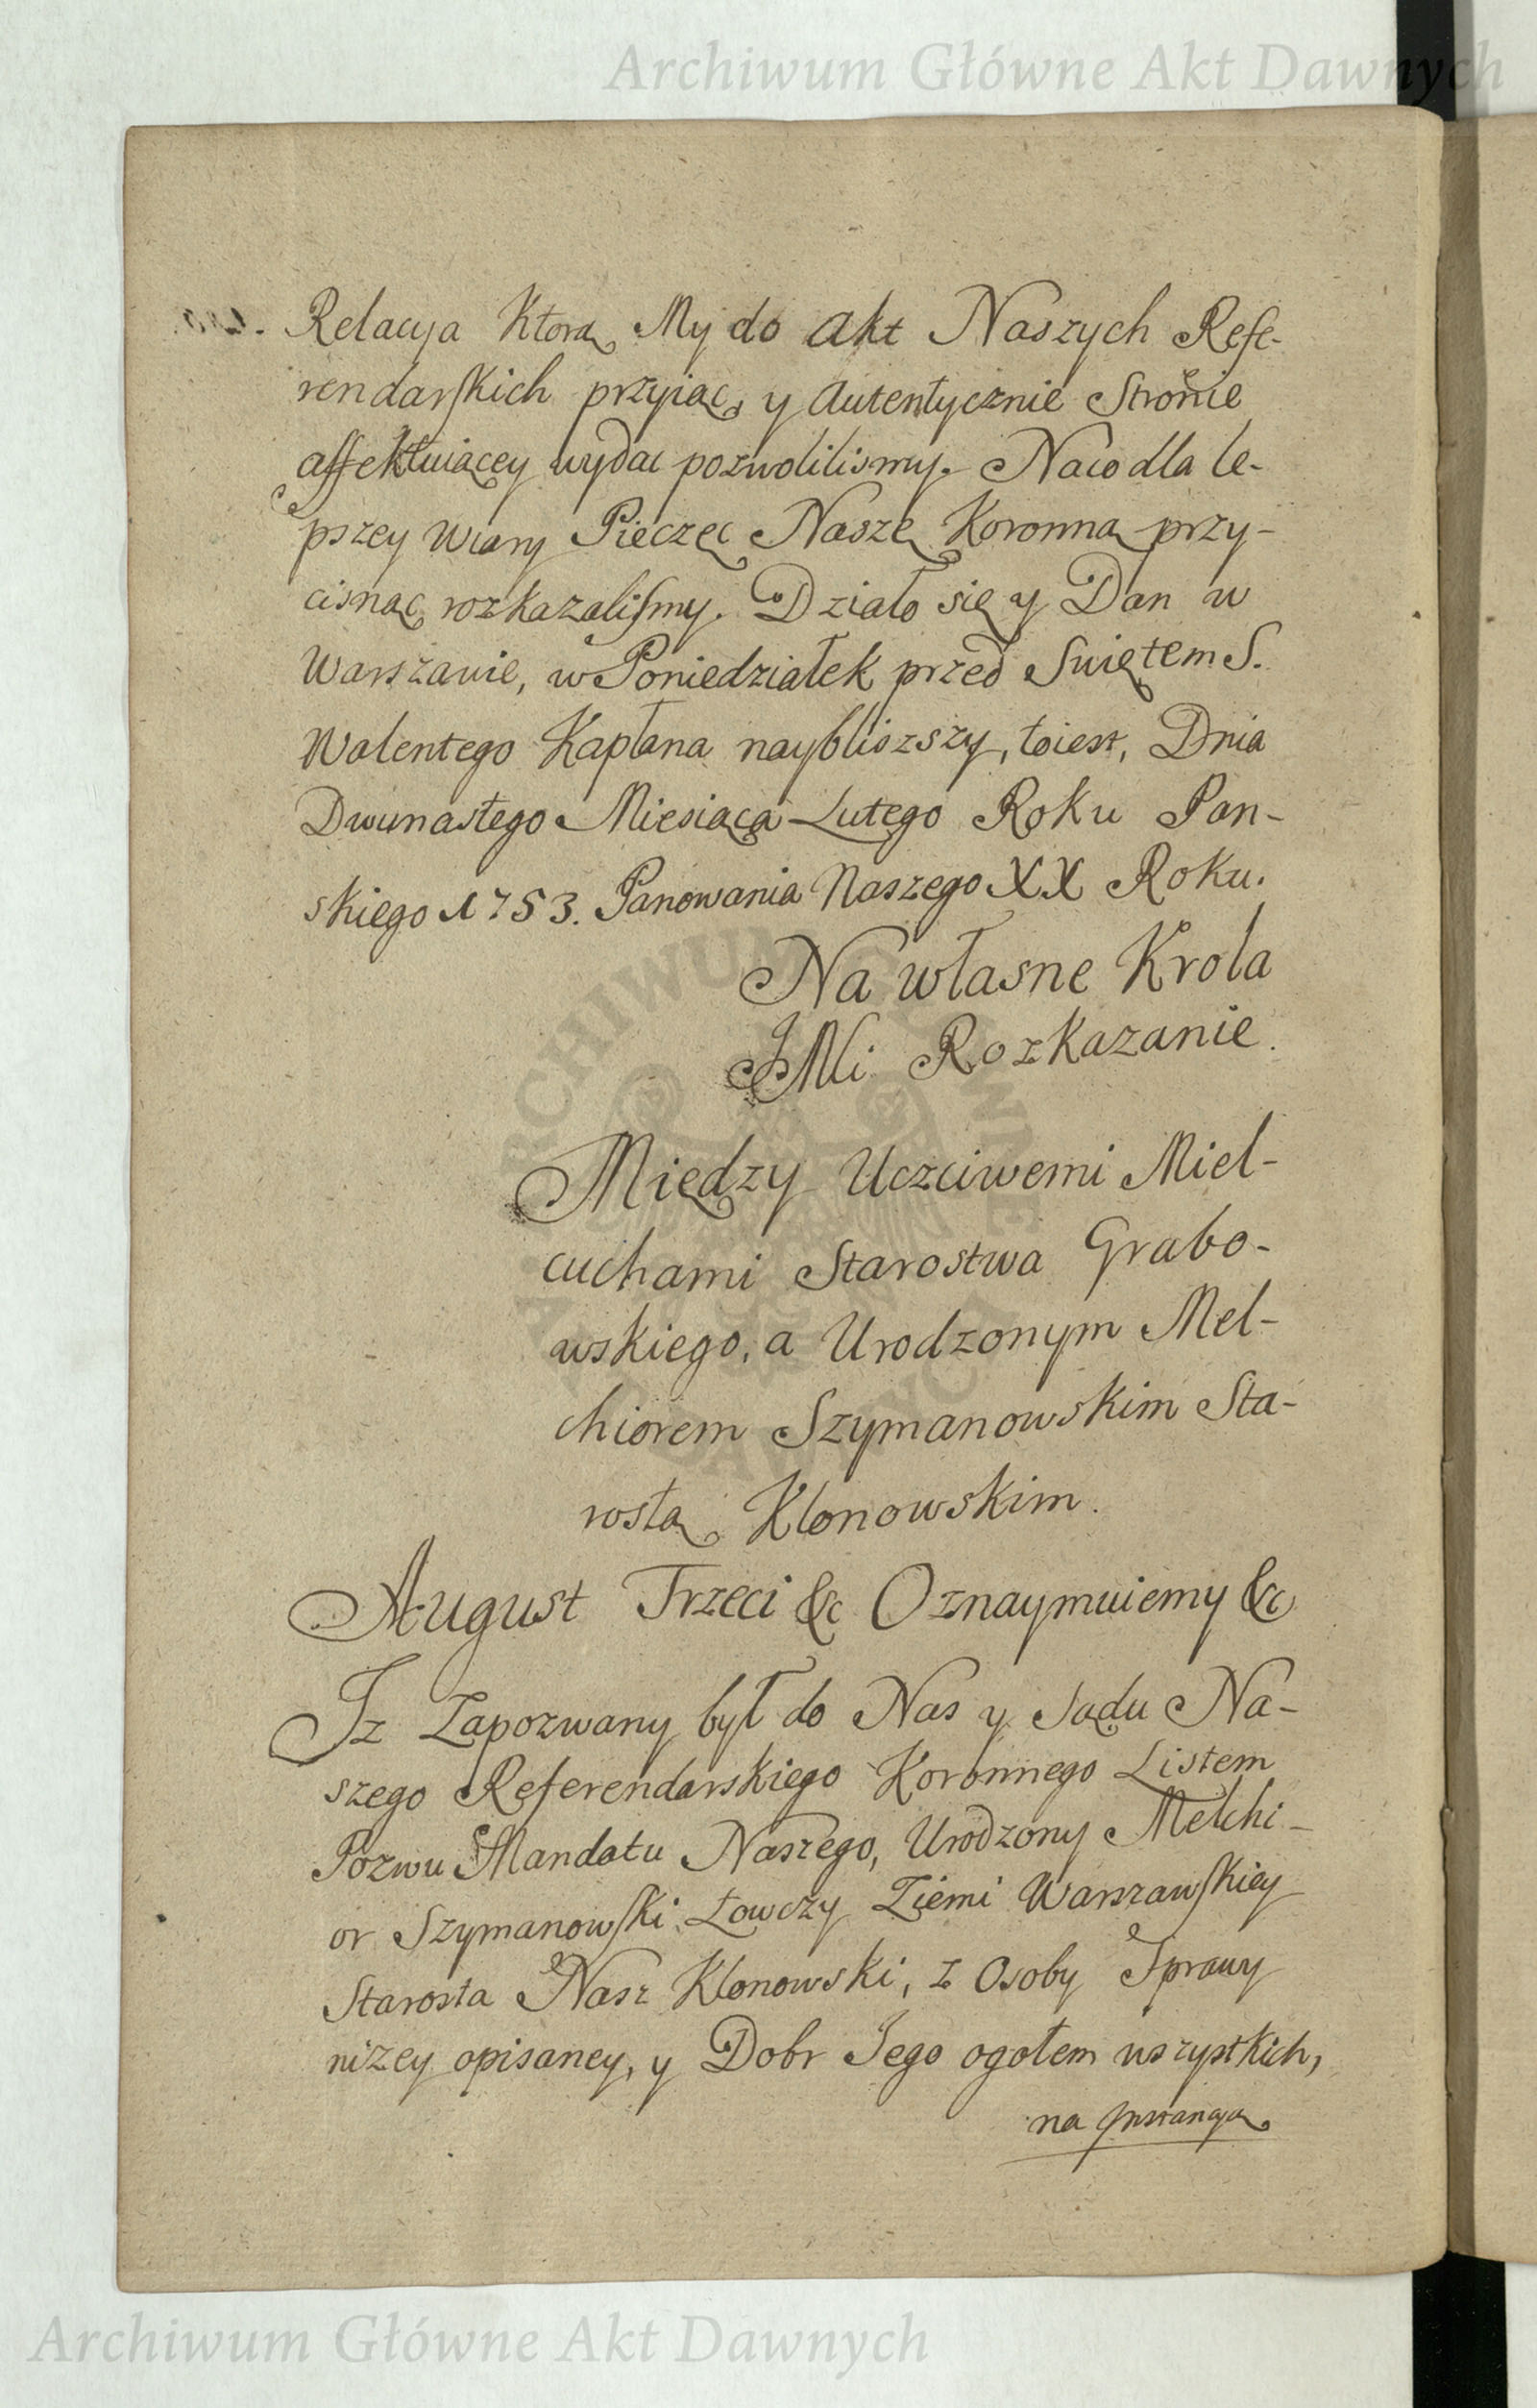 Archiwum Główne Akt Dawnych
Relacya Ktorą My do Akt Naszych Refe-
rendarskich przyiąc y Autentycznie Stronie
affektuiącey wydac pozwolilismy. Naco dla le-
pszey Wiary Pieczęc Naszę Koronną przy-
cisnąc rozkazalismy. Działo się y Dan w
Warszawie, w Poniedziałek przed Swiętem S.
Walentego Kapłana naybliszszy, toiest, Dnia
Dwunastego Miesiąca Lutego Roku Pan-
skiego 1753. Panowania Naszego XX Roku.
Na własne Krola
JMci Rozkazanie.
Między Uczciwemi Miel-
cuchami Starostwa Grabo-
wskiego, a Urodzonym Mel-
chiorem Szymanowskim Sta-
rostą Klonowskim.
August Trzeci &c Oznaymuiemy &c
Iz Zapozwany był do Nas y Sądu Na-
szego Referendarskiego Koronnego Listem
Pozwu Mandatu Naszego, Urodzony Melchi-
or Szymanowski Łowczy Ziemi Warszawskiey
Starosta Nasz Klonowski, z Osoby Sprawy
nizey opisaney, y Dobr Jego ogołem wszystkich,
na Instancyą
Archiwum Główne Akt Dawnych